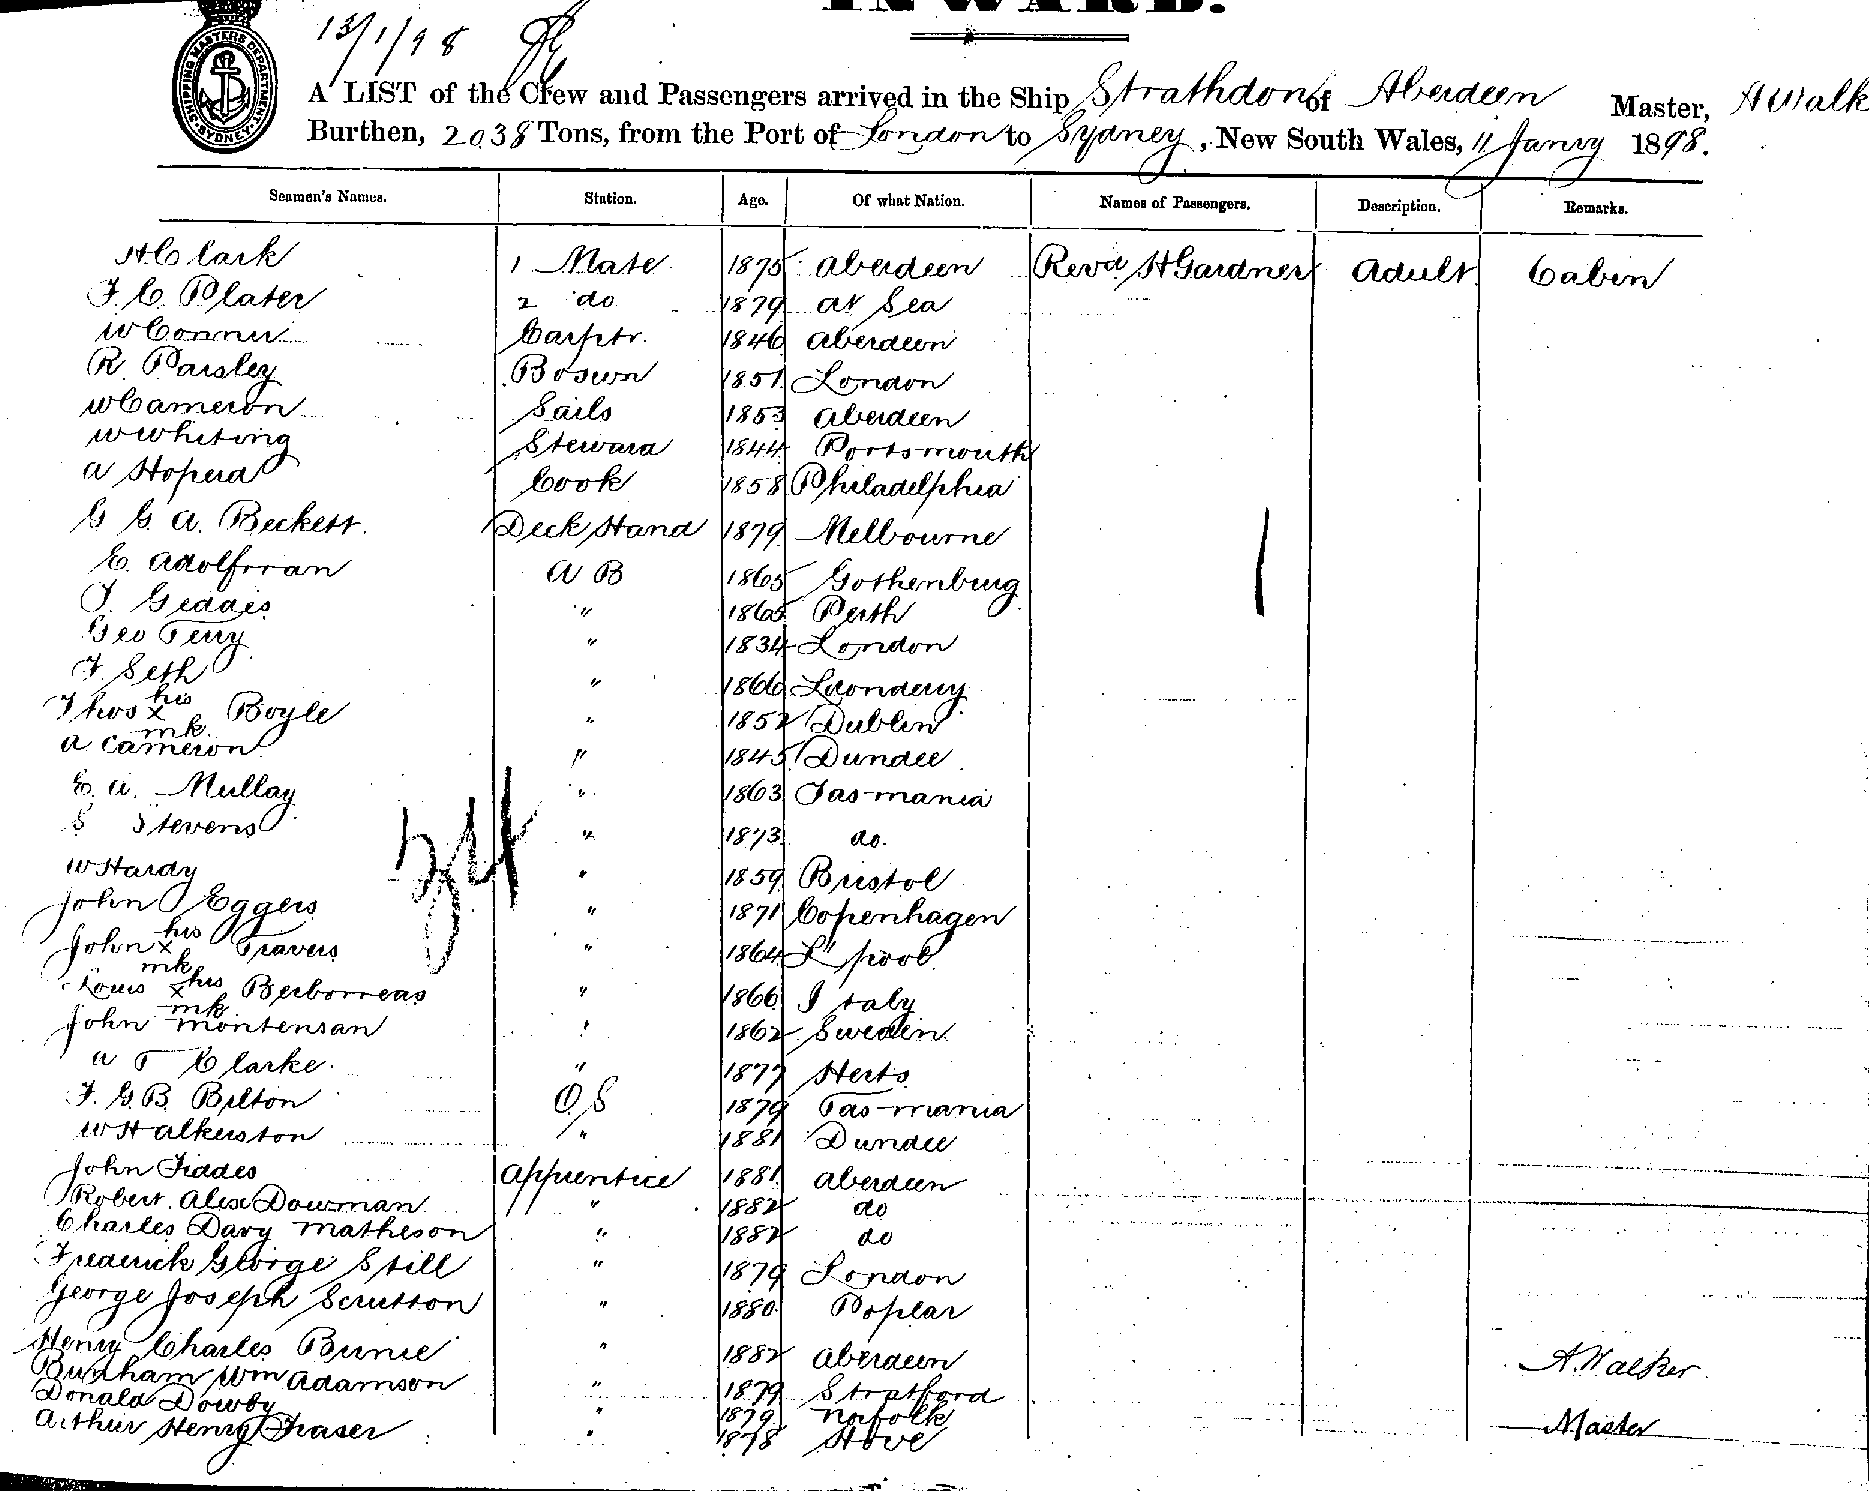 INWARD.
SHIPPING MASTERS DEPARTMENT SYDNEY
13/1/98
A LIST of the Crew and Passengers arrived in the Ship Strathdon of Aberdeen Master, A Walk
Burthen, 2038 Tons, from the Port of London to Sydney, New South Wales, 11 Janry 1898.
Seamen's Names. Station. Age. Of what Nation. Names of Passengers. Description. Remarks.
A Clark 1 Mate 1875 Aberdeen Revd H Gardner Adult Cabin
F. C. Plater 2 do 1879 At Sea
W Connir Carptr. 1846 Aberdeen
R. Paisley Bosun 1851 London
W Cameron Sails 1853 Aberdeen
W Whiting Steward 1844 Portsmouth
A Hoperd Cook 1858 Philadelphia
G G. A. Beckett. Deck Hand 1879 Melbourne
E. Adolfsran A B 1865 Gothenburg
J. Geddes " 1865 Perth
Geo Terry " 1834 London
F Seth " 1866 Lonondery
Thos his x mk Boyle " 1852 Dublin
A Cameron " 1845 Dundee
E. A. Mullay " 1863 Tasmania
S Stevens " 1873 do.
W Hardy " 1859 Bristol
John Eggers " 1871 Copenhagen
John his x mk Travers " 1864 L'pool
Louis his x mk " 1866 Italy
John Montensan " 1862 Sweden
A T Clarke. " 1877 Herts
F. G. B. Bilton O S 1879 Tasmania
W Halkerston " 1881 Dundee
John Fiddes Apprentice 1881 Aberdeen
Robert Alex Dowman " 1882 do
Charles Davy Matheson " 1882 do
Frederick George Still " 1879 London
George Joseph Scrutton " 1880 Poplar
Henry Charles Birnie " 1882 Aberdeen A. Walker
Burnham Wm Adamson " 1879 Stratford
Donald Dowby " 1879 Norfolk
Arthur Henry Fraser " 1878 Hove Master
34